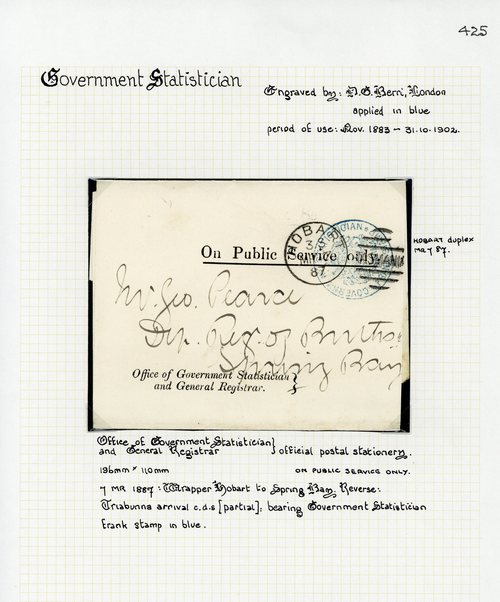 425
Government Statistician
Engraved by: D.G. Berri, London
applied in blue
period of use: Nov. 1883 – 31.10.1902.
HOBART
87
HOBART duplex
MR 7 87.
On Public Service only.
Mr. Geo. Pearce
Dep. Reg. of Births
Spring Bay
Office of Government Statistician }
and General Registrar.
Office of Government Statistician }
and General Registrar } official postal stationery.
196mm × 110mm ON PUBLIC SERVICE ONLY.
7 MR 1887: Wrapper Hobart to Spring Bay. Reverse:
Triabunna arrival c.d.s [partial]; bearing Government Statistician
frank stamp in blue.